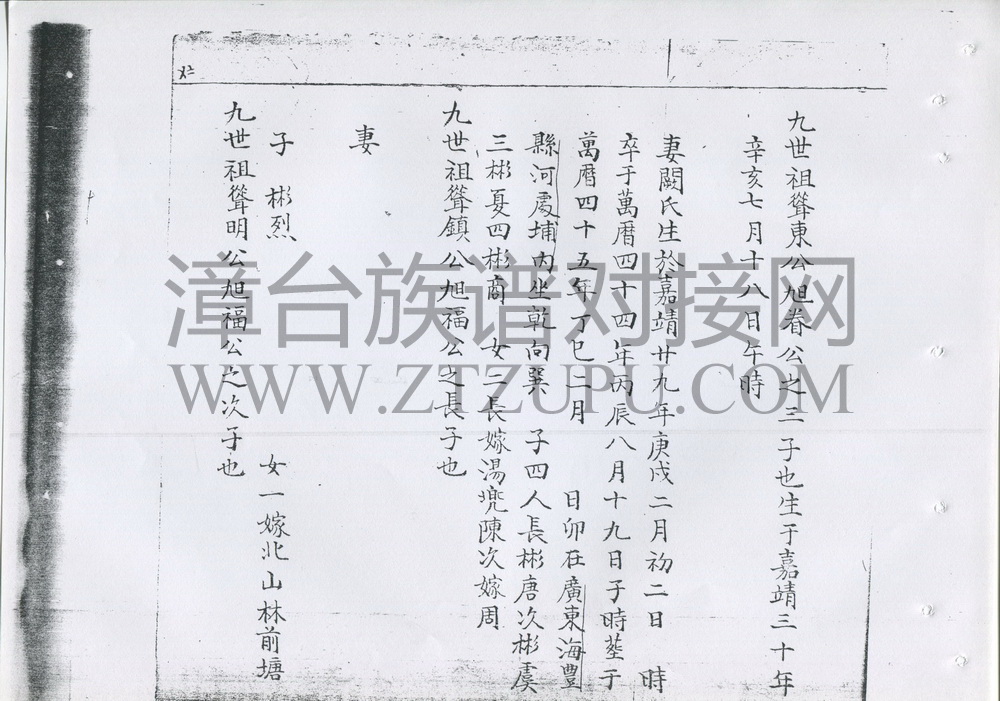 九世祖聳東公旭眷公之三子也生于嘉靖三十年
辛亥七月十八日午時
妻闕氏生於嘉靖廿九年庚戌二月初二日 時
卒于萬曆四十四年丙辰八月十九日子時塟于
萬曆四十五年丁巳二月 日卯在廣東海豐
縣河處埔內坐乾向巽 子四人長彬唐次彬虞
三彬夏四彬商 女二長嫁湯兠陳次嫁周
九世祖聳鎮公旭福公之長子也
妻
子彬烈 女一嫁北山林前塘
九世祖聳明公旭福公之次子也
漳台族谱对接网
WWW.ZTZUPU.COM